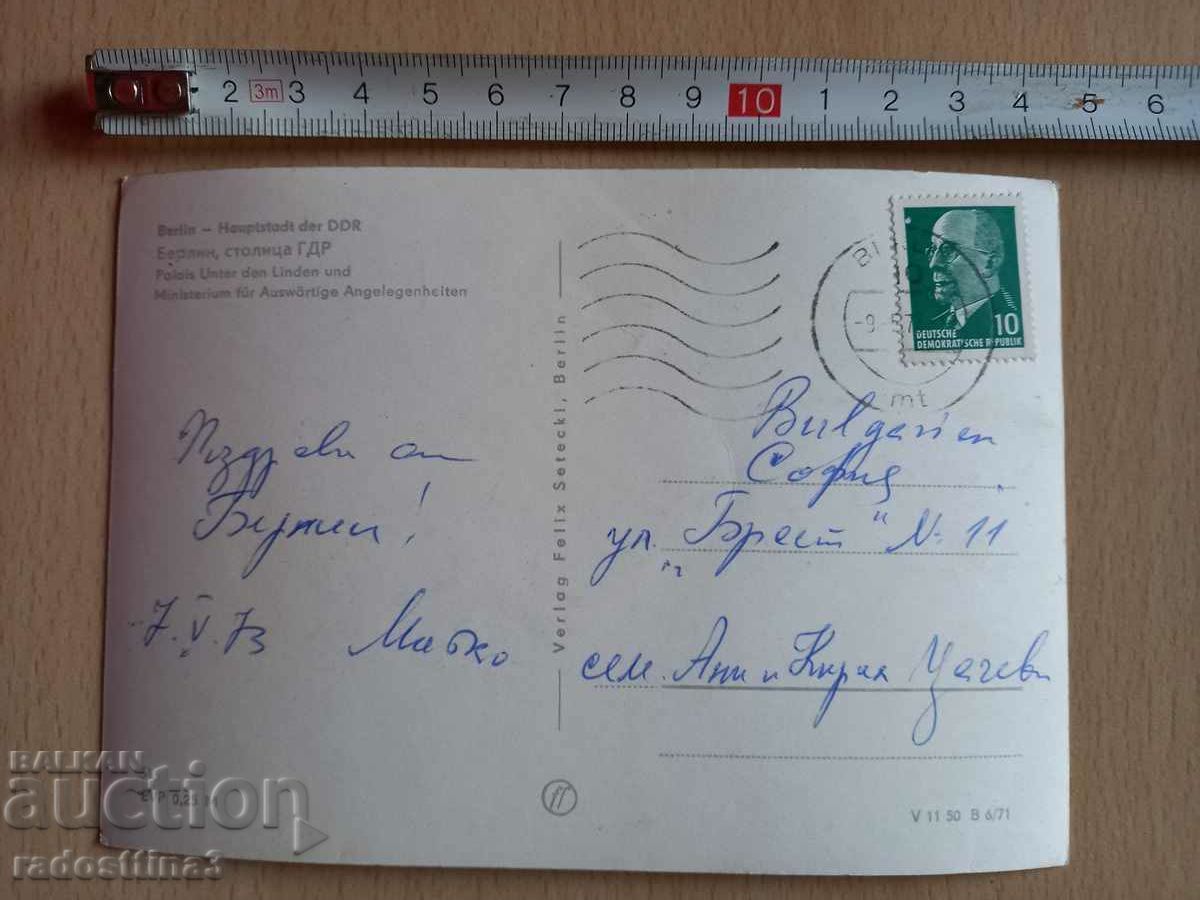 2 3m 3 4 5 6 7 8 9 10 1 2 3 4 5 6
Berlin – Hauptstadt der DDR
Берлин, столица ГДР
Palais Unter den Linden und
Ministerium für Auswärtige Angelegenheiten
DEUTSCHE 10
DEMOKRATISCHE REPUBLIK
-9.
mt
Поздрави от
Берлин!
7.V.73 Матко
Verlag Felix Setecki, Berlin
Bulgarien
София
ул. „Брест" № 11
сем. Ани и Кирил Цачеви
EVP 0,25 M
V 11 50 B 6/71
BALKAN
auction
radosttina3